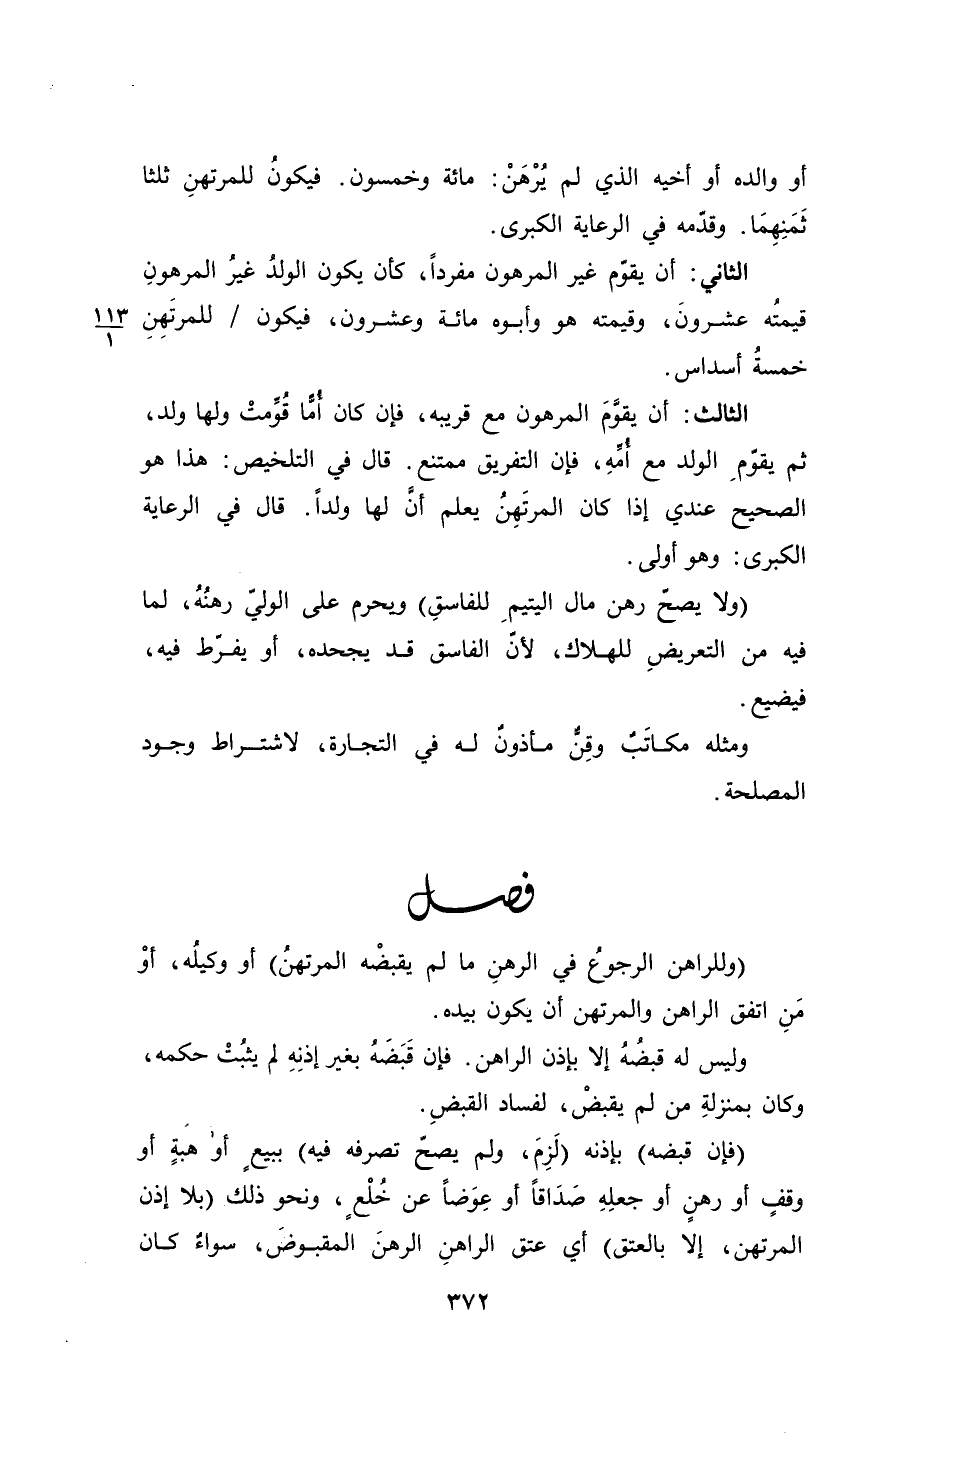 أو والده أو أخيه الذي لم يُرْهَنْ: مائة وخمسون. فيكونُ للمرتهنِ ثلثا
ثَمَنِهِمَا. وقدّمه في الرعاية الكبرى.
الثاني: أن يقوّم غير المرهون مفرداً، كأن يكون الولدُ غيرُ المرهونِ
قيمتُه عشرونَ، وقيمته هو وأبوه مائة وعشرون، فيكون / للمرتَهِنِ ١١٣
١
خمسةُ أسداس.
الثالث: أن يقوَّمَ المرهون مع قريبه، فإن كان أُمًّا قُوِّمتْ ولها ولد،
ثم يقوّمِ الولد مع أُمِّهِ، فإن التفريق ممتنع. قال في التلخيص: هذا هو
الصحيح عندي إذا كان المرتَهِنُ يعلم أنَّ لها ولداً. قال في الرعاية
الكبرى: وهو أولى.
(ولا يصحّ رهن مال اليتيمِ للفاسقِ) ويحرم على الوليّ رهنُهُ، لما
فيه من التعريضِ للهلاك، لأنّ الفاسق قد يجحده، أو يفرّط فيه،
فيضيع.
ومثله مكاتَبٌ وقِنٌّ مأذونٌ له في التجارة، لاشتراط وجود
المصلحة.
فصل
(وللراهن الرجوعُ في الرهنِ ما لم يقبضْه المرتهنُ) أو وكيلُه، أوْ
مَنِ اتفق الراهن والمرتهن أن يكون بيده.
وليس له قبضُهُ إلا بإذن الراهن. فإن قَبَضَهُ بغير إذنِهِ لم يثبُتْ حكمه،
وكان بمنزلةِ من لم يقبضْ، لفساد القبضِ.
(فإن قبضه) بإذنه (لَزِمَ، ولم يصحّ تصرفه فيه) ببيعٍ أو هبَةٍ أو
وقفٍ أو رهنٍ أو جعلِهِ صَدَاقاً أو عِوَضاً عن خُلْعٍ، ونحو ذلك (بلا إذن
المرتهن، إلا بالعتق) أي عتق الراهنِ الرهنَ المقبوضَ، سواءٌ كان
٣٧٢